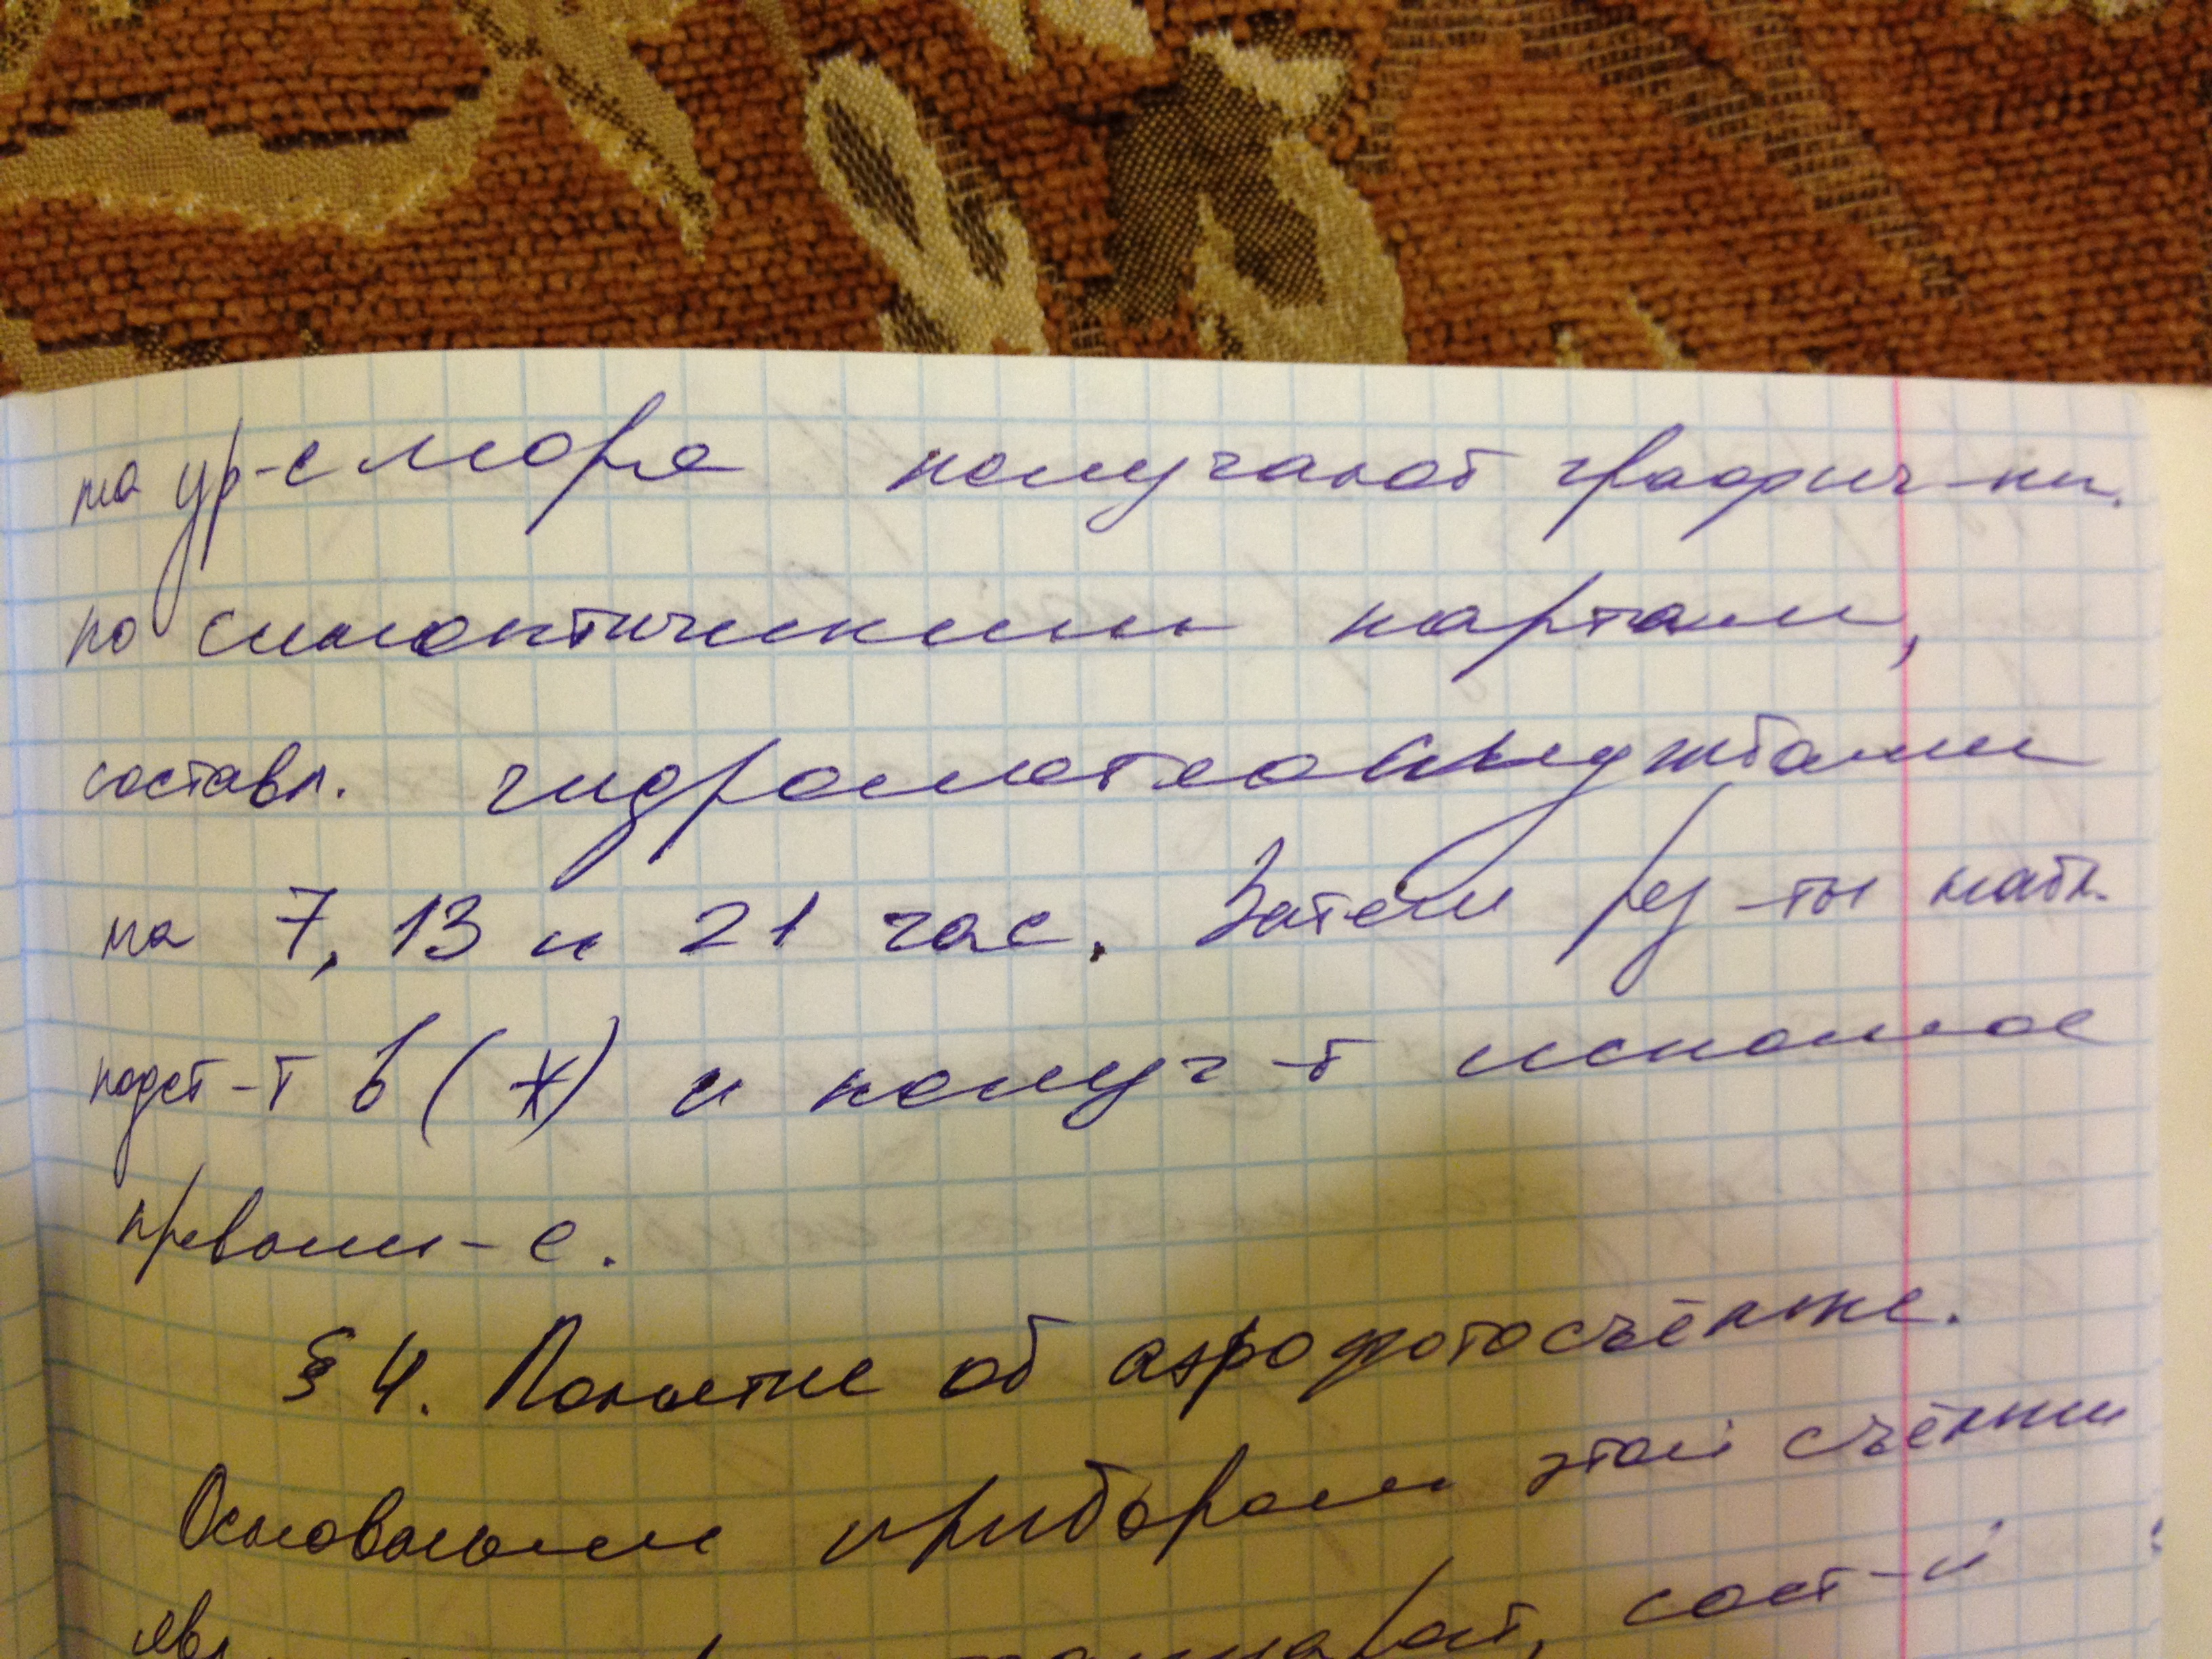 на ур-е моря получают графич-ки.
по синоптическим картам,
составл. гидрометеослужбами
на 7, 13 и 21 час. Затем рез-ты набл.
подст-т в (*) и получ-т искомое
превыш-е.
§ 4. Понятие об аэрофотосъёмке.
Основным прибором этой съёмки
сост-й